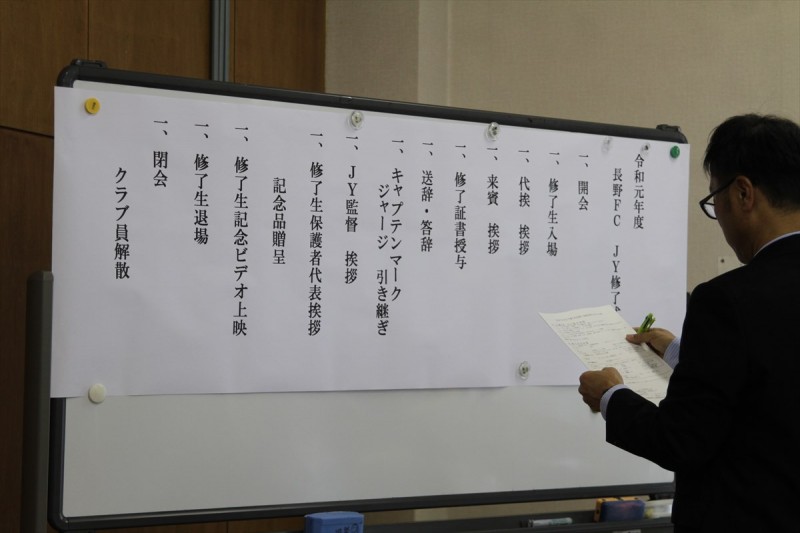 令和元年度
長野FC　JY修了
一、開会
一、修了生入場
一、代挨　挨拶
一、来賓　挨拶
一、修了証書授与
一、送辞・答辞
一、キャプテンマーク
ジャージ　引き継ぎ
一、JY監督　挨拶
一、修了生保護者代表挨拶
記念品贈呈
一、修了生記念ビデオ上映
一、修了生退場
一、閉会
クラブ員解散